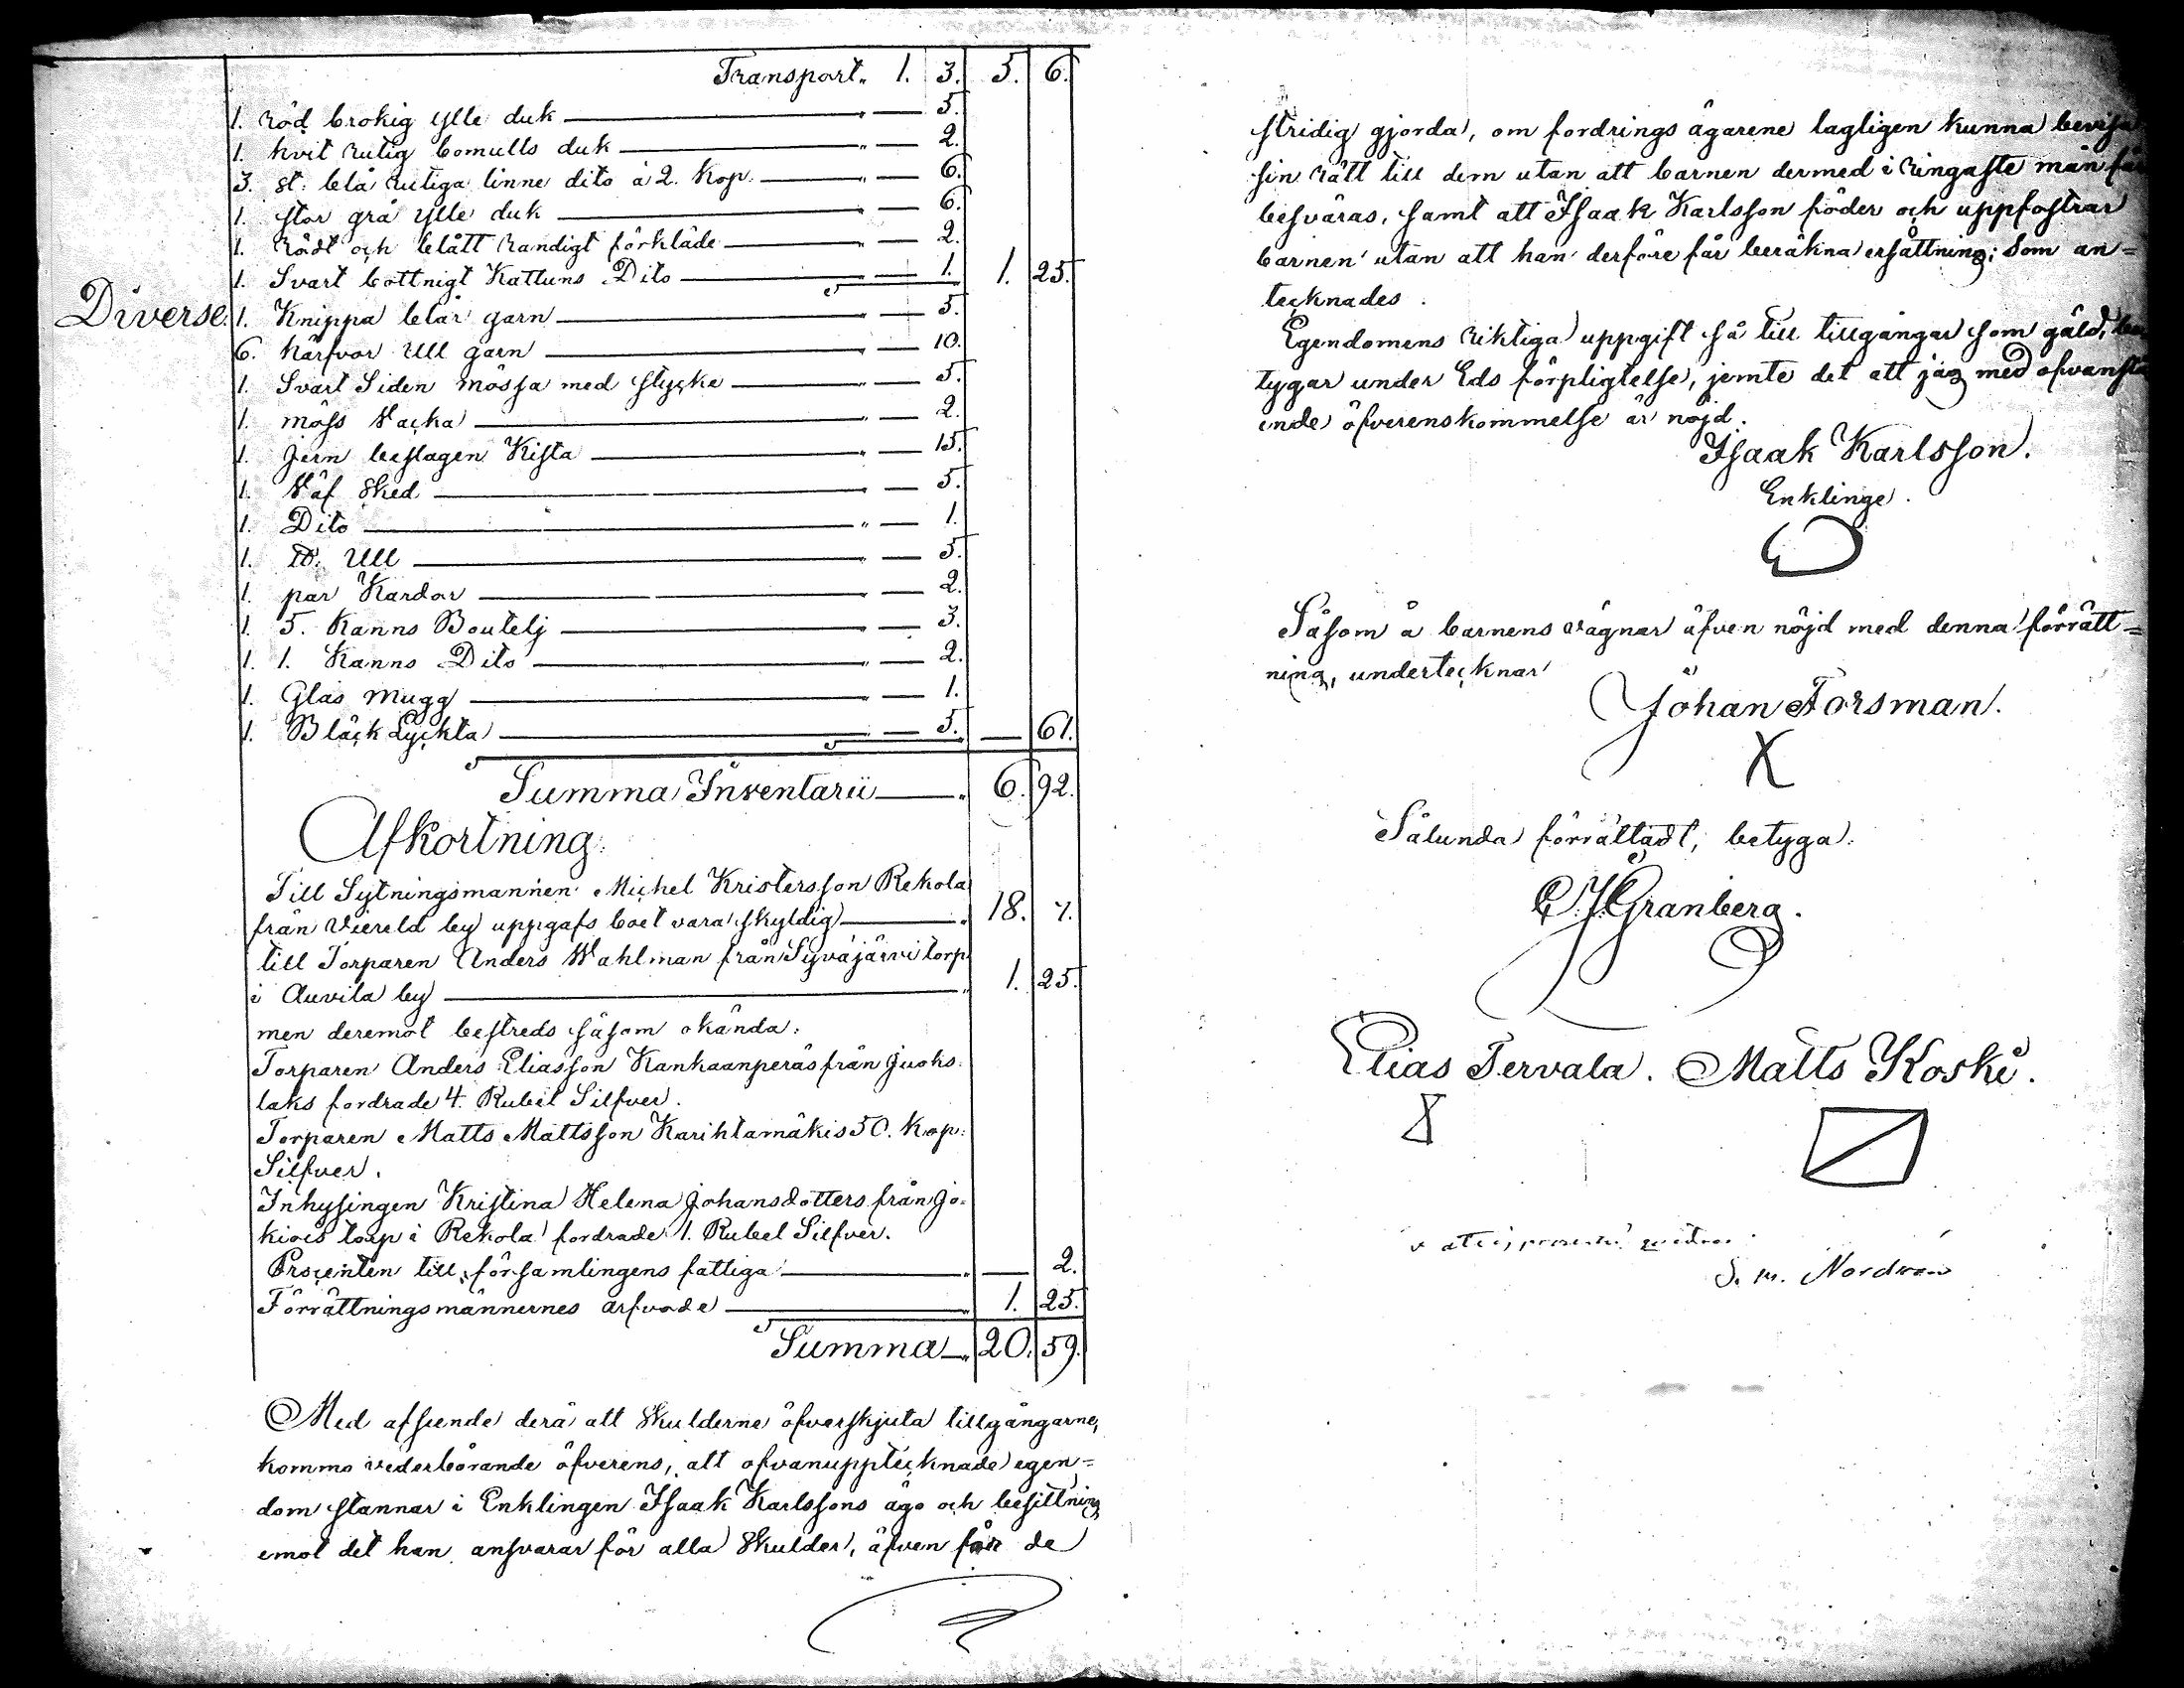 Transport „ 1. 3. 5. 6.
1. röd brokig ylle duk — „ — 5.
1. hvit rutig bomulls duk — „ — 2.
3. st: blå rutiga linne dito à 2. Kop. — „ — 6.
1. stor grå ylle duk — „ — 6.
1. Rödt och blått randigt förkläde — „ — 2.
1. Svart bottnigt Kattuns Dito — „ — 1. 1. 25.
Diverse. 1. Knippa blår garn — „ — 5.
6. härfvor Ull garn — „ — 10.
1. Svart Siden mössa med stycke — „ — 5.
1. möss Vacka — „ — 2.
1. Jern beslagen Kista — „ — 15.
1. Väf Sked — „ — 5.
1. Dito — „ — 1.
1. ℔. Ull — „ — 5.
1. par Kardor — „ — 2.
1. 5. Kanns Boutelj — „ — 3.
1. 1. Kanns Dito — „ — 2.
1. Glas mugg — „ — 1.
1. Bläck Lyckta — „ — 5. — 61.
Summa Inventarii — „ 6. 92.
Afkortning.
Till Sytningsmannen Michel Kristersson Rekola
från Viereld by uppgafs boet vara skyldig — „ 18. 7.
till Torparen Anders Wahlman från Syväjärvi torp
i Auvila by — „ 1. 25.
men deremot bestreds såsom okända:
Torparen Anders Eliasson Kankaanperäs från Juoks-
laks fordrade 4. Rubel Silfver.
Torparen Matts Mattsson Karihtamäkis 50. Kop:
Silfver.
Inhysingen Kristina Helena Johansdotters från Jo-
kiois torp i Rekola fordrade 1. Rubel Silfver.
Procenten till församlingens fattiga — „ — 2.
Förrättningsmännernes arfvode — „ 1. 25.
Summa — „ 20. 59.
Med afseende derå att Skulderne öfverskjuta tillgångarne,
komma vederbörande öfverens, att ofvanupptecknade egen=
dom stannar i Enklingen Isaak Karlssons ägo och besittning
emot det han ansvarar för alla Skulder, äfven för de
stridig gjorda, om fordrings ägarene lagligen kunna bevisa
sin rätt till dem utan att barnen dermed i ringaste mån få
besväras, samt att Isaak Karlsson föder och uppfostrar
barnen utan att han derföre får beräkna ersättning; Som an=
tecknades.
Egendomens riktiga uppgift så till tillgångar som gäld, be
tygar under Eds förpligtelse, jemte det att jag med ofvanstå
ende öfverenskommelse är nöjd.
Isaak Karlsson.
Enklinge.
Såsom å barnens vägnar äfven nöjd med denna förrätt=
ning, undertecknar
Johan Forsman.
X
Sålunda förrättadt, betyga:
Granberg.
Elias Tervala. Matts Koski.